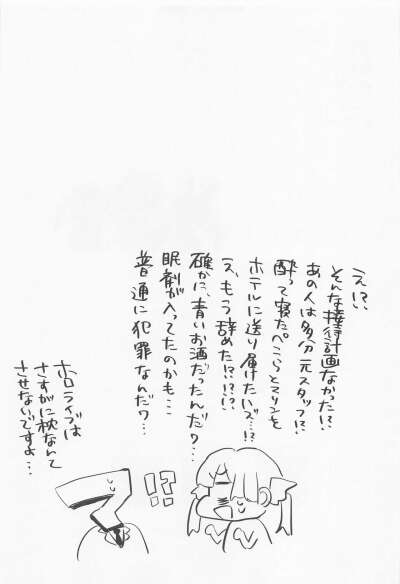 え!?
そんな接待計画なかった!?
あの人は多分元スタッフ!?
酔って寝たぺこらとマリンを
ホテルに送り届けたハズ…!?
え、もう辞めた!?!?!?
確かに、青いお酒だったんだワ…
眠剤が入ってたのかも…
普通に犯罪なんだワ…
ホロライブは
さすがに枕なんて
させないですよ…
!?